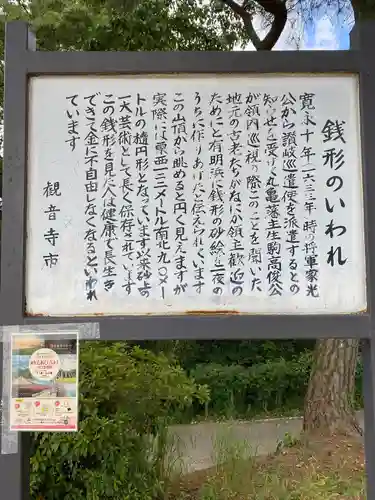 銭形のいわれ
寛永十年(一六三三年)時の将軍家光
公から讃岐へ巡遣使を派遣するとの
知らせを受けた丸亀藩主生駒高俊公
が領内巡視の際このことを聞いた
地元の古老たちがなにか領主歓迎の
ためにと有明浜に銭形の砂絵を一夜の
うちに作りあげたと伝えられています
この山頂から眺めると円く見えますが
実際には東西一二二メートル南北九〇メー
トルの楕円形となっています以来砂上の
一大芸術として長く保存されています
この銭形を見た人は健康で長生き
できて金に不自由しなくなるといわれ
ています
観音寺市